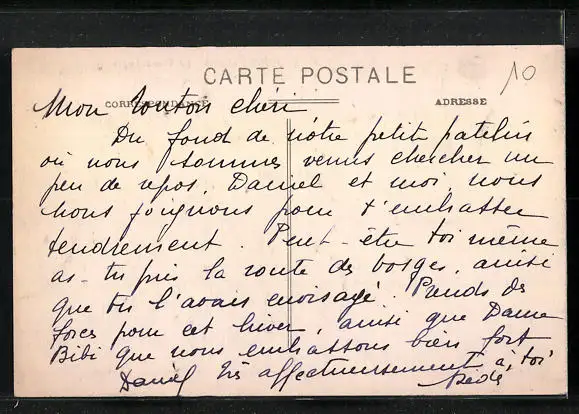 CARTE POSTALE
10
CORRESPONDANCE
ADRESSE
Mon chéri
Du fond de notre petit patelin
où nous sommes venus chercher un
peu de repos, Daniel et moi, nous
nous joignons pour t'embrasser
tendrement. Peut-être toi même
as-tu pris la route des Vosges, ainsi
que tu l'avais envisagé. Prends des
forces pour cet hiver, ainsi que Dame
Bibi que nous embrassons bien fort
Daniel très affectueusement à toi